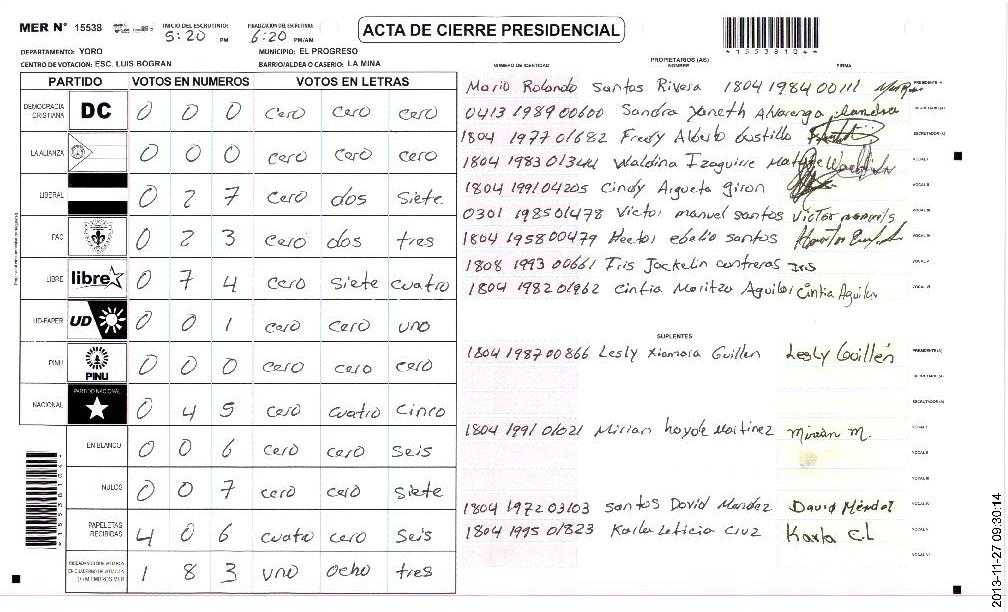 MER N° 15538
INICIO DEL ESCRUTINIO: 5:20 PM
FINALIZACION DEL ESCRUTINIO: 6:20 PM/AM
ACTA DE CIERRE PRESIDENCIAL
*155381044*
DEPARTAMENTO: YORO
MUNICIPIO: EL PROGRESO
CENTRO DE VOTACION: ESC. LUIS BOGRAN
BARRIO/ALDEA O CASERIO: LA MINA
PARTIDO VOTOS EN NUMEROS VOTOS EN LETRAS
DEMOCRACIA CRISTIANA DC 0 0 0 cero cero cero
LA ALIANZA 0 0 0 cero cero cero
LIBERAL 0 2 7 cero dos siete
PAC 0 2 3 cero dos tres
LIBRE libre 0 7 4 cero siete cuatro
UD-FAPER UD 0 0 1 cero cero uno
PINU PINU 0 0 0 cero cero cero
NACIONAL PARTIDO NACIONAL 0 4 5 cero cuatro cinco
EN BLANCO 0 0 6 cero cero seis
NULOS 0 0 7 cero cero siete
PAPELETAS RECIBIDAS 4 0 6 cuatro cero seis
CIUDADANOS QUE VOTARON EN CUADERNO DE VOTACION (+) MIEMBROS MER 1 8 3 uno ocho tres
PROPIETARIOS (AS)
NUMERO DE IDENTIDAD NOMBRE FIRMA
Mario Rolando Santos Rivera 1804 1984 00111 PRESIDENTE (A)
0413 1989 00600 Sandra Yaneth Alvarenga Sandra SECRETARIO (A)
1804 1977 01682 Fredy Alberto Castillo ESCRUTADOR (A)
1804 1983 Waldina Izaguirre VOCAL I
1804 1991 04205 Cindy Argueta Giron VOCAL II
0301 1985 01478 Victor manuel santos Victor VOCAL III
1804 1958 00479 Hector ebelio santos VOCAL IV
1808 1993 00661 Iris Jackelin contreras Iris VOCAL V
1804 1982 01962 Cintia Maritza Aguilar Cintia Aguilar VOCAL VI
SUPLENTES
1804 1987 00866 Lesly Xiomara Guillen Lesly Guillén PRESIDENTE (A)
SECRETARIO (A)
ESCRUTADOR (A)
1804 1991 01021 Mirian Martinez Mirian M. VOCAL I
VOCAL II
VOCAL III
1804 1972 03103 santos David Mendez David Méndez VOCAL IV
1804 1995 01823 Karla Leticia Cruz Karla C.L VOCAL V
VOCAL VI
*155381044*
2013-11-27 09:30:14